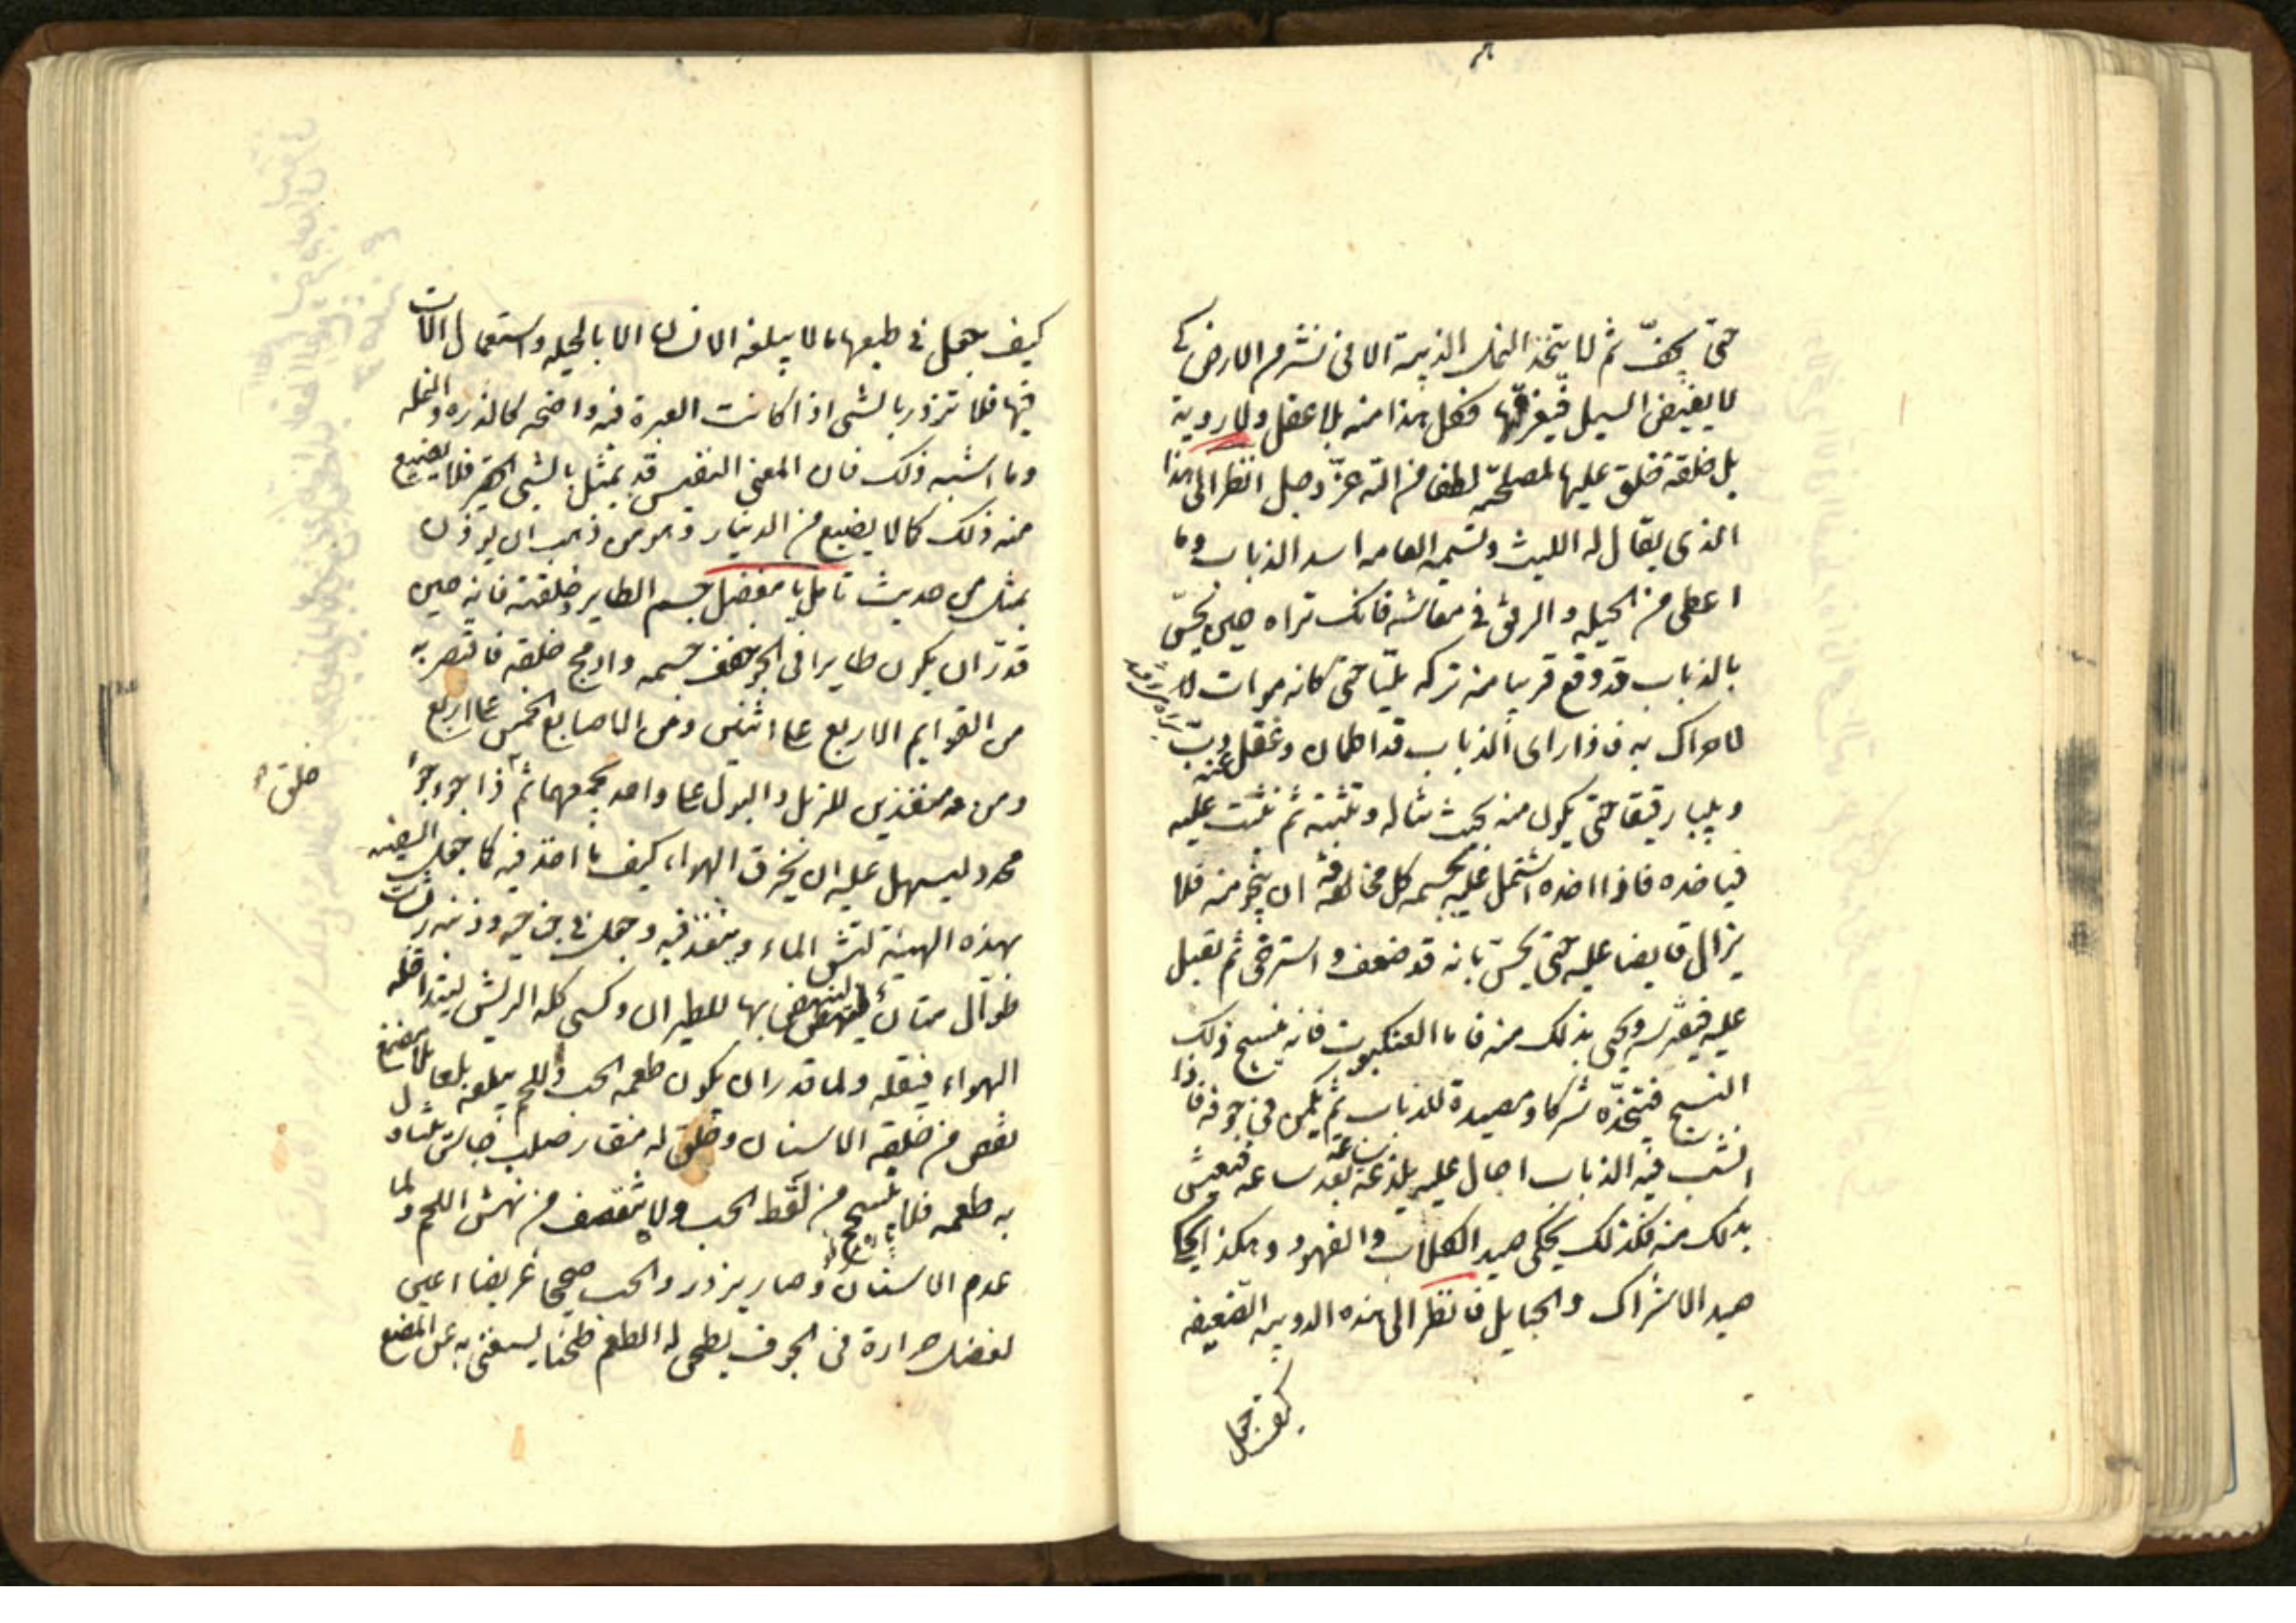 حتى يجف ثم لا يتخذ النمل الذبية الا فى نشز من الارض كى
لا يفيض السيل فيغرقها فكل هذا منه بلا عقل ولا روية
بل خلقة خلق عليها لمصلحة لطفا من الله عز وجل انظر الى هذا
الذى يقال له الليث وتسميه العامه اسد الذباب وما
اعطى من الحيله والرفق فى معاشه فانك تراه حين يحس
بالذباب قد وقع قريبا منه تركه مليا حتى كانه موات
لا حراك به فاذا راى الذباب قد اطمان وغفل عنه دب
دبيبا رقيقا حتى يكون منه بحيث يناله وثبته ثم يثب عليه
فياخذه فاذا اخذه اشتمل عليه بجسمه كله مخافة ان ينجو منه فلا
يزال قابضا عليه حتى يحس بانه قد ضعف واسترخى ثم يقبل
عليه فيفترسه ويحيى بذلك منه فاما العنكبوت فانه ينسج ذلك
النسج فيتخذه شركا ومصيدة للذباب ثم يكمن فى جوفه فاذا
نشب فيه الذباب احال عليه يلدغه ساعة بعد ساعه فيعيش
بذلك منه فكذلك يحكى صيد الكلاب والفهود وهكذا يحكى
صيد الاشراك والحبايل فانظر الى هذه الدويبه الضعيفه
كيف جعل
كيف جعل فى طبعها ما لا يبلغه الانسان الا بالحيله واستعمال الات
فيها فلا تزدر بالشى اذا كانت العبرة فيه واضحه كالذره والنمله
وما اشبه ذلك فان المعنى النفيس قد يمثل بالشى الحقير فلا يضع
منه ذلك كما لا يضع من الدينار وهو من ذهب ان يوزن
بمثقال من حديث تامل يا مفضل جسم الطاير وخلقته فانه حين
قدر ان يكون طايرا فى الجو خفف جسمه وادمج خلقه فاقتصر به
من القوايم الاربع على اثنتين ومن الاصابع الخمس على اربع
ومن منفذين للزبل والبول على واحد يجمعهما ثم ذا جؤجؤ
خلق
محدد ليسهل عليه ان يخرق الهواء كيف ما اخذ فيه كما جعل السفينه
بهذه الهيئة لتشق الماء وينفذ فيه وجعل فى جناحيه وذنبه ريشات
طوال متان لينهض بها للطيران وكسى كله الريش ليتداخله
الهواء فيقله ولما قدر ان يكون طعمه الحب واللحم يبلعه بلعا بلا مضغ
نقص من خلقه الاسنان وخلق له منقار صلب جاسى يتناول
به طعمه فلا ينسحج من لقط الحب ولا يتقصف من نهش اللحم ولما
عدم الاسنان وصار يزدرد الحب صحيحا غريضا اعين
بفضل حرارة فى الجوف يطحن له الطعم طحنا يستغنى به عن المضغ